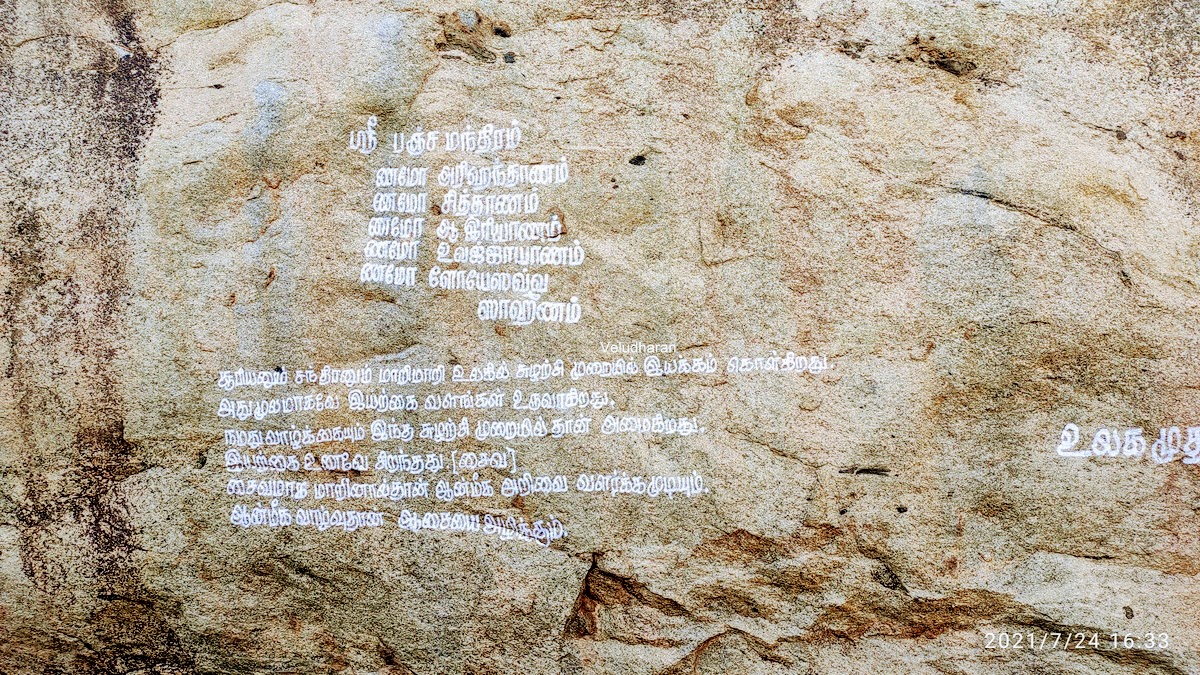 ஸ்ரீ பஞ்ச மந்திரம்
ணமோ அரிஹந்தாணம்
ணமோ சித்தாணம்
ணமோ ஆ இரியாணம்
ணமோ உவஜ்ஜாயாணம்
ணமோ ளோயேஸவ்வ
ஸாஹூணம்
Veludharan
சூரியனும் சந்திரனும் மாறிமாறி உலகில் சுழற்சி முறையில் இயக்கம் கொள்கிறது.
அதுமூலமாகவே இயற்கை வளங்கள் உருவாகிறது.
நமது வாழ்க்கையும் இந்த சுழற்சி முறையில் தான் அமைகிறது.
இயற்கை உணவே சிறந்தது [சைவ]
சைவமாக மாறினால்தான் ஆன்மீக அறிவை வளர்க்க முடியும்.
ஆன்மீக வாழ்வுதான் ஆசையை அழிக்கும்.
உலக முத
2021/7/24 16:33